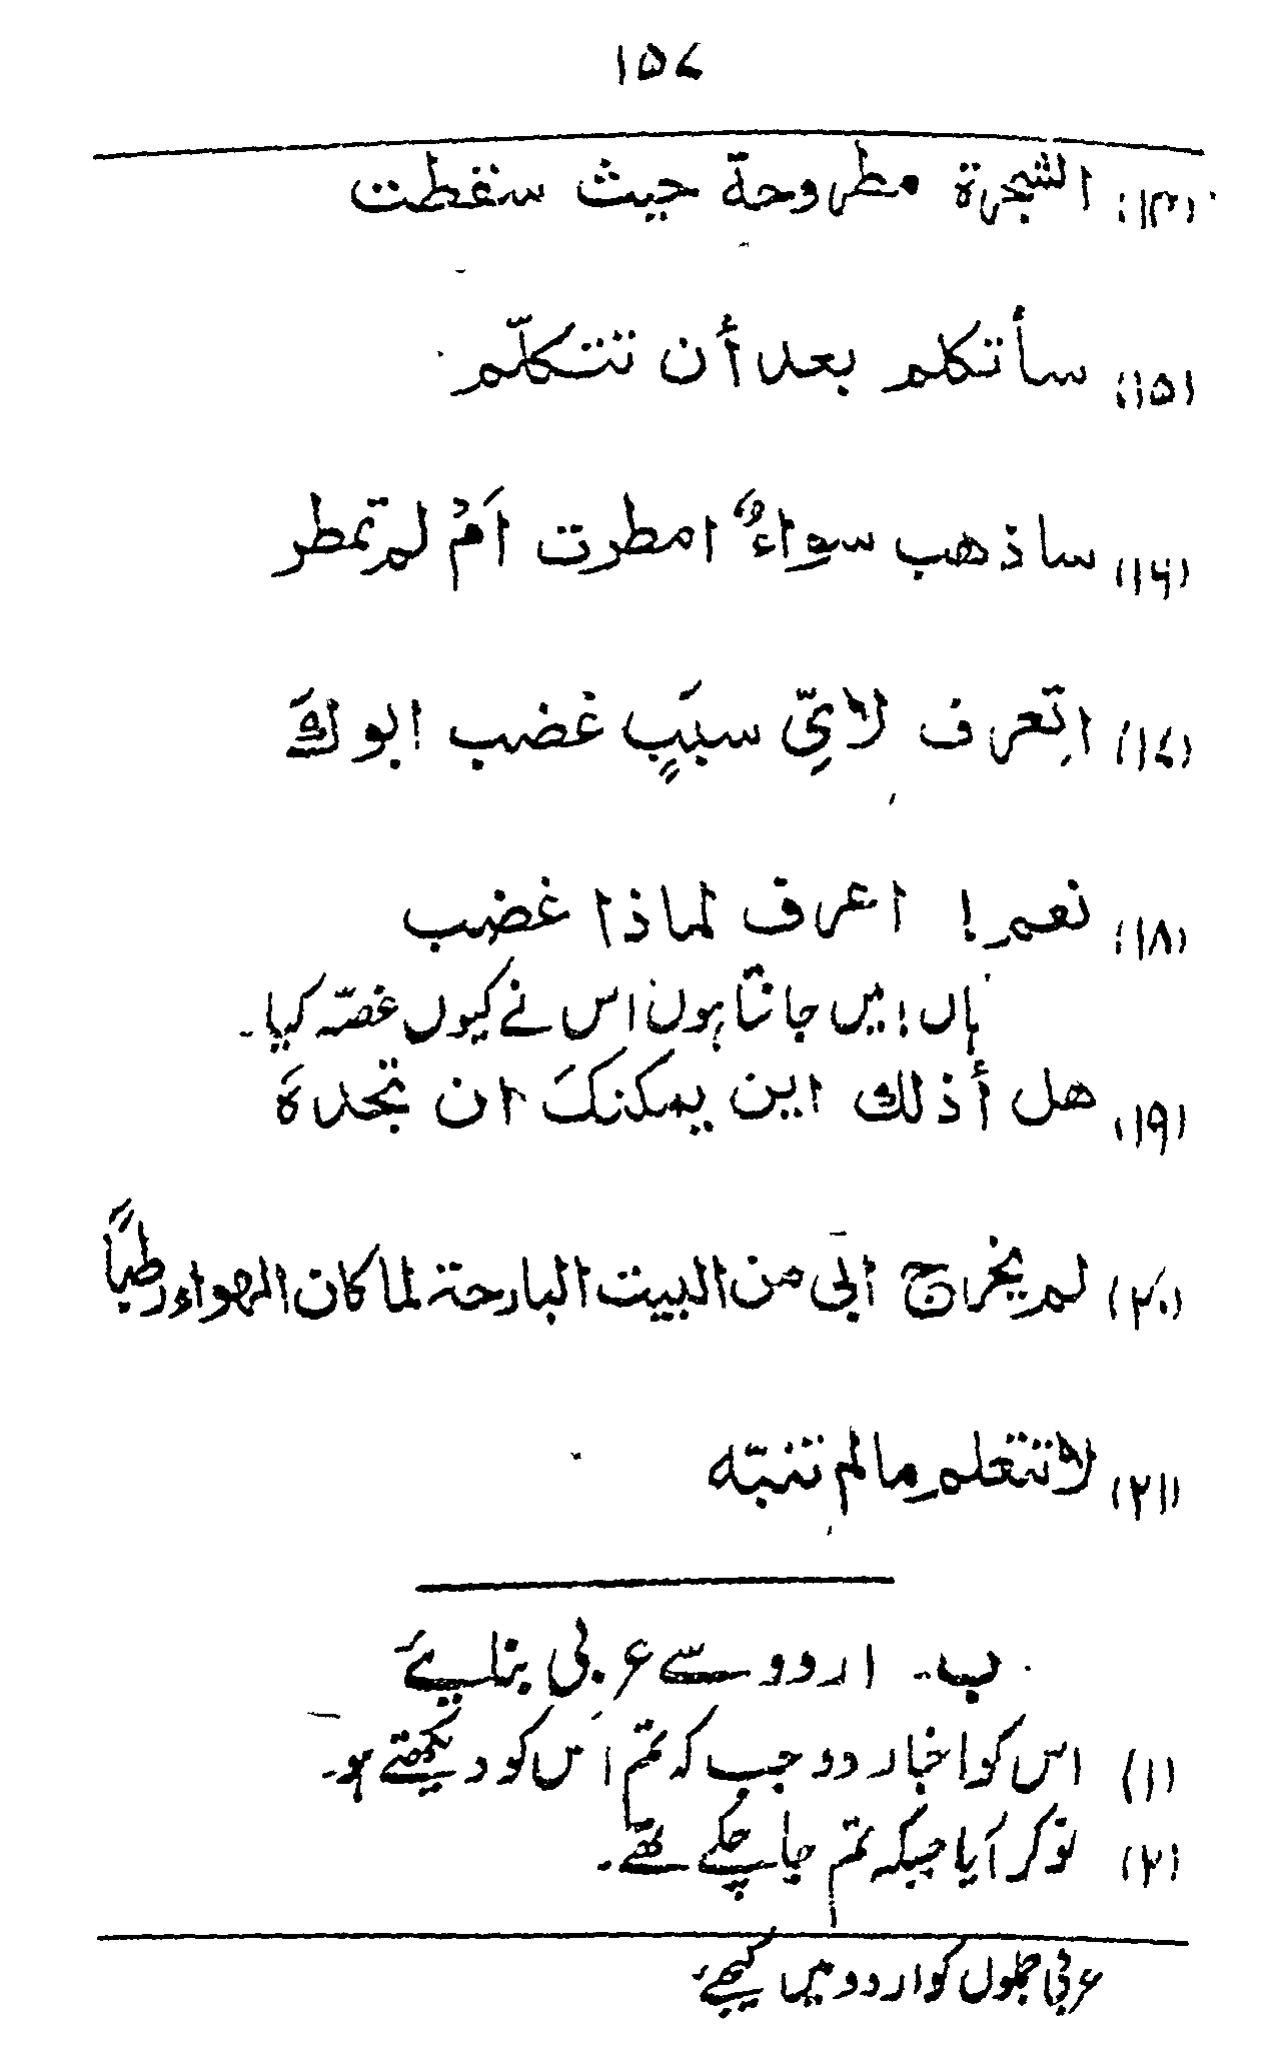 ۱۵۷
(۱۴) الشجرة مطروحة حيث سقطت
(۱۵) سأتكلم بعد أن تتكلّم
(۱۶) ساذهب سواءٌ امطرت اَمْ لم تمطر
(۱۷) اتعرف لاىِّ سببٍ غضب ابوكَ
(۱۸) نعم! اعرف لماذا غضب
ہاں! میں جانتا ہوں اس نے کیوں غصّہ کیا۔
(۱۹) هل أذلك اين يمكنكَ ان تجدهَ
(۲۰) لم يخرج ابى من البيت البارحة لما كان الهواء رطباً
(۲۱) لا تتعلم ما لم تنبّه
ب۔ اردو سے عربی بنایئے
(۱) اس کو اخبار دو جب کہ تم اس کو دیکھتے ہو۔
(۲) نوکر آیا جبکہ تم جا چکے تھے۔
عربی جملوں کو اردو میں کیجئے